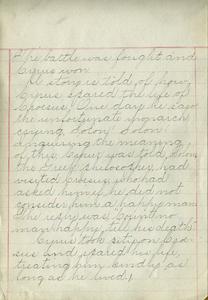 The battle was fought and
Cyrus won.
A story is told of how
Cyrus spared the life of
Croesus. One day he saw
the unfortunate monarch
crying, Solon! Solon!
inquiring the meaning
of this Cyrus was told, Solon
the Greek philosopher, had
visited Croesus, who had
asked him if he did not
consider him a happy man.
The reply was Count no
man happy, till his death.
Cyrus took pity on Croe-
sus and spared his life,
treating him kindly as
long as he lived.